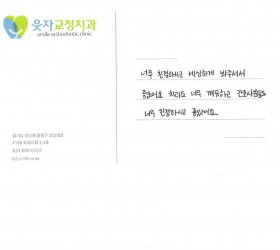 웃자교정치과
smile orthodontic clinic
너무 친절하시고 세심하게 봐주셔서
좋았어요 치과도 너무 깨끗하고 간호사분들도
너무 친절하시고 좋았어요.